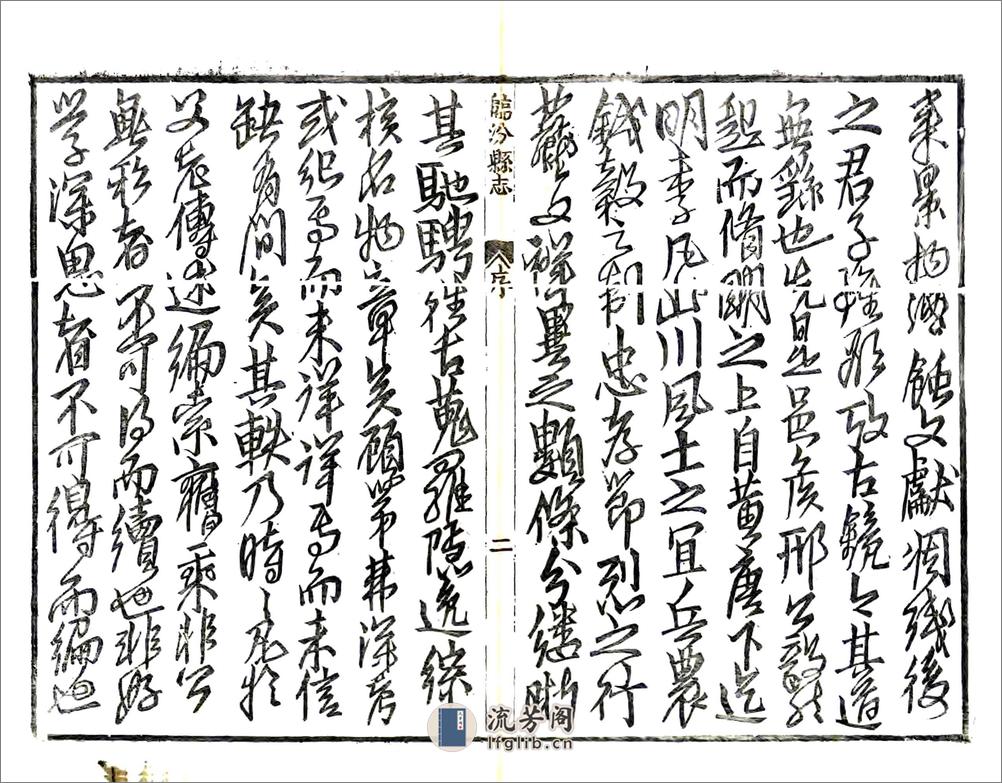 来景物凋蝕文獻凋殘後
之君子雖欲攷古鏡今其道
無繇也先是邑侯邢公毅然
起而脩明之上自黃唐下迄
明季凡山川風土之宜兵農
錢穀之制忠孝節烈之行
藝文祥異之類條分縷晰
臨汾縣志
序
二
其馳騁往古蒐羅隱逸綜
核名物章矣顧第弗深考
或紀焉而未詳詳焉而未信
缺有間矣其軼乃時時見於
父老傳述編索舊乘非公
無私者不可得而續也非好
學深思者不可得而編也
流芳阁
lfglib.cn